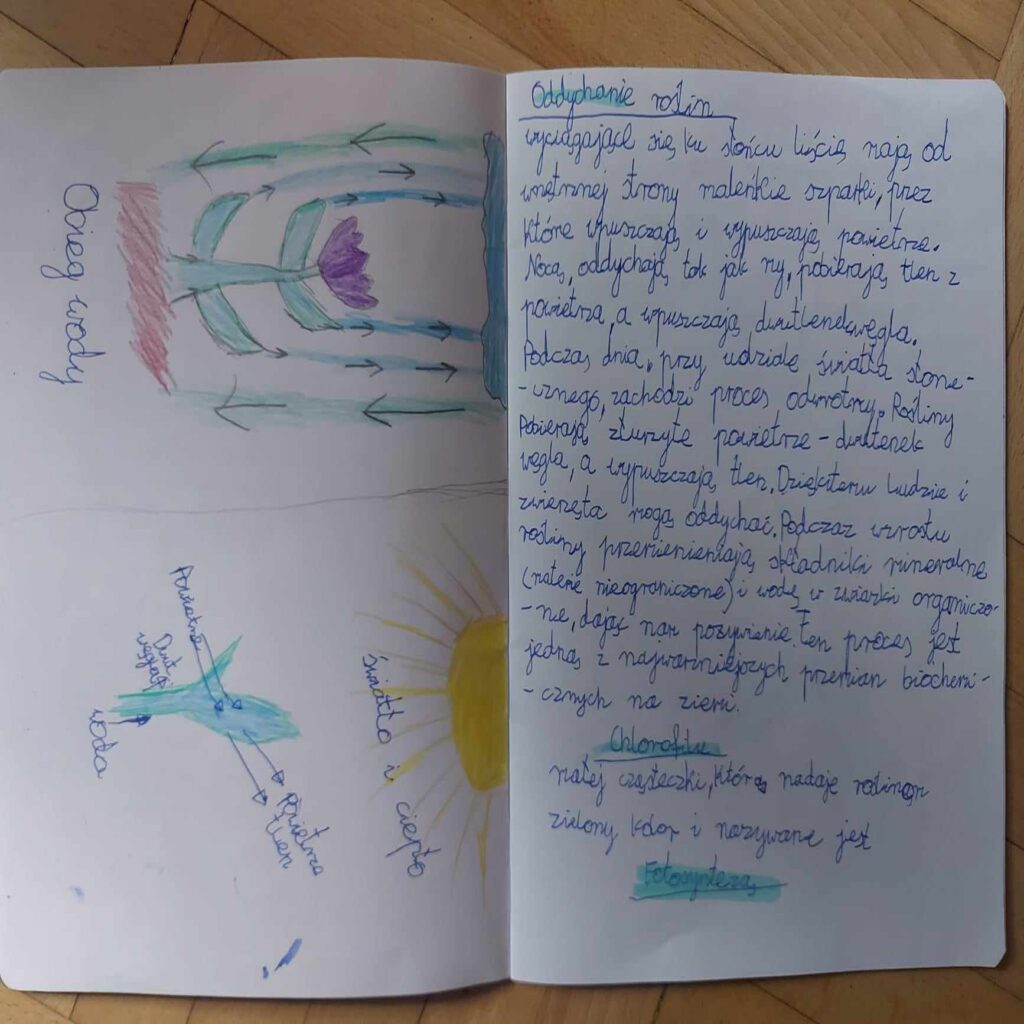 Obieg wody
światło i ciepło
Powietrze
Dwutl.
węgla
woda
Powietrze
tlen
Oddychanie roślin
wyciągające się ku słońcu liście mają od
wnętrznej strony maleńkie szparki, przez
które wpuszczają i wypuszczają powietrze.
Nocą, oddychają tak jak my, pobierają tlen z
powietrza, a wpuszczają dwutlenek węgla.
Podczas dnia, przy udziale światła słone-
-cznego, zachodzi proces odwrotny. Rośliny
Pobierają zturzyte powietrze - dwutenek
węgla, a wypuszczają tlen. Dzięki temu ludzie i
zwierzęta mogą oddychać. Podczaz wzrostu
rośliny przemienieniają składniki mineralne
(materie nieograniczone) i wodę w związki organiczo-
-ne, dając nam pożywienie. Ten proces jest
jedną z najważniejszych przemian biochemi-
-cznych na ziemi.
Chlorofilu
małej cząsteczki, którą nadaje roślinom
zielony kolor i nazywane jest
Fotosyntezą